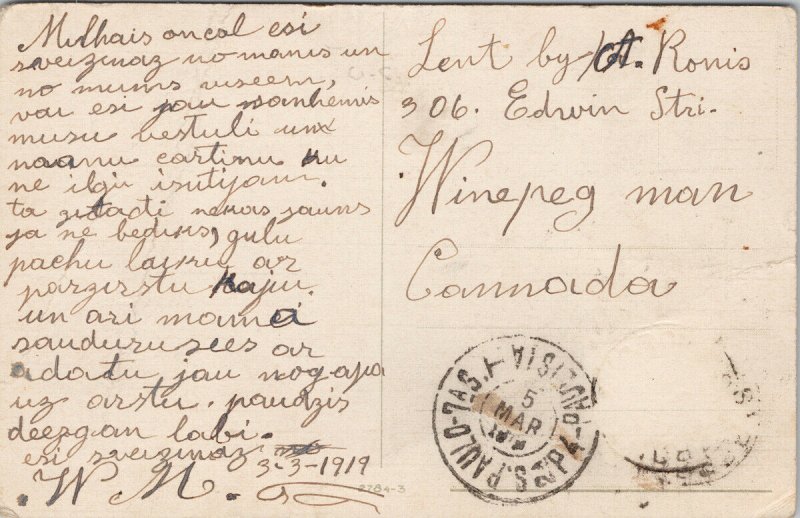 Milhais oncol esi
sveizinaz no manis un
no mums viseem,
vai esi jau sanhemis
musu vestuli un
naanu cartinu ku
ne ilgi isutijam.
ta zidadi nekas jauns
ja ne bediks, gulu
pachu laiku ar
pargirstu kaju.
un ari mamai
saudurusees ar
adatu jau nogapa
uz arstu. paudzis
deezgan labi.
esi sveizinaz
3-3-1919
W M.
Lent by A. Ronis
306. Edwin Stri.
Winepeg man
Cannada
5
MAR
S. PAULO
2784-3